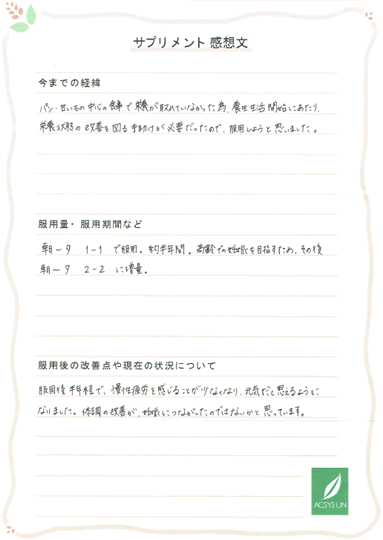 サプリメント 感想文
今までの経緯
パン・甘いもの中心の食事で栄養が取れていなかった為、養生生活開始にあたり、
栄養状態の改善を図る手助けが必要だったので、服用しようと思いました。
服用量・服用期間など
朝ータ 1-1 で服用。約半年間。高齢での妊娠を目指すため、その後
朝ータ 2-2 に増量。
服用後の改善点や現在の状況について
服用後半年経て、慢性疲労を感じることが少なくなり、元気だと思えるように
なりました。体調の改善が、妊娠につながったのではないかと思っています。
ACSYS UN